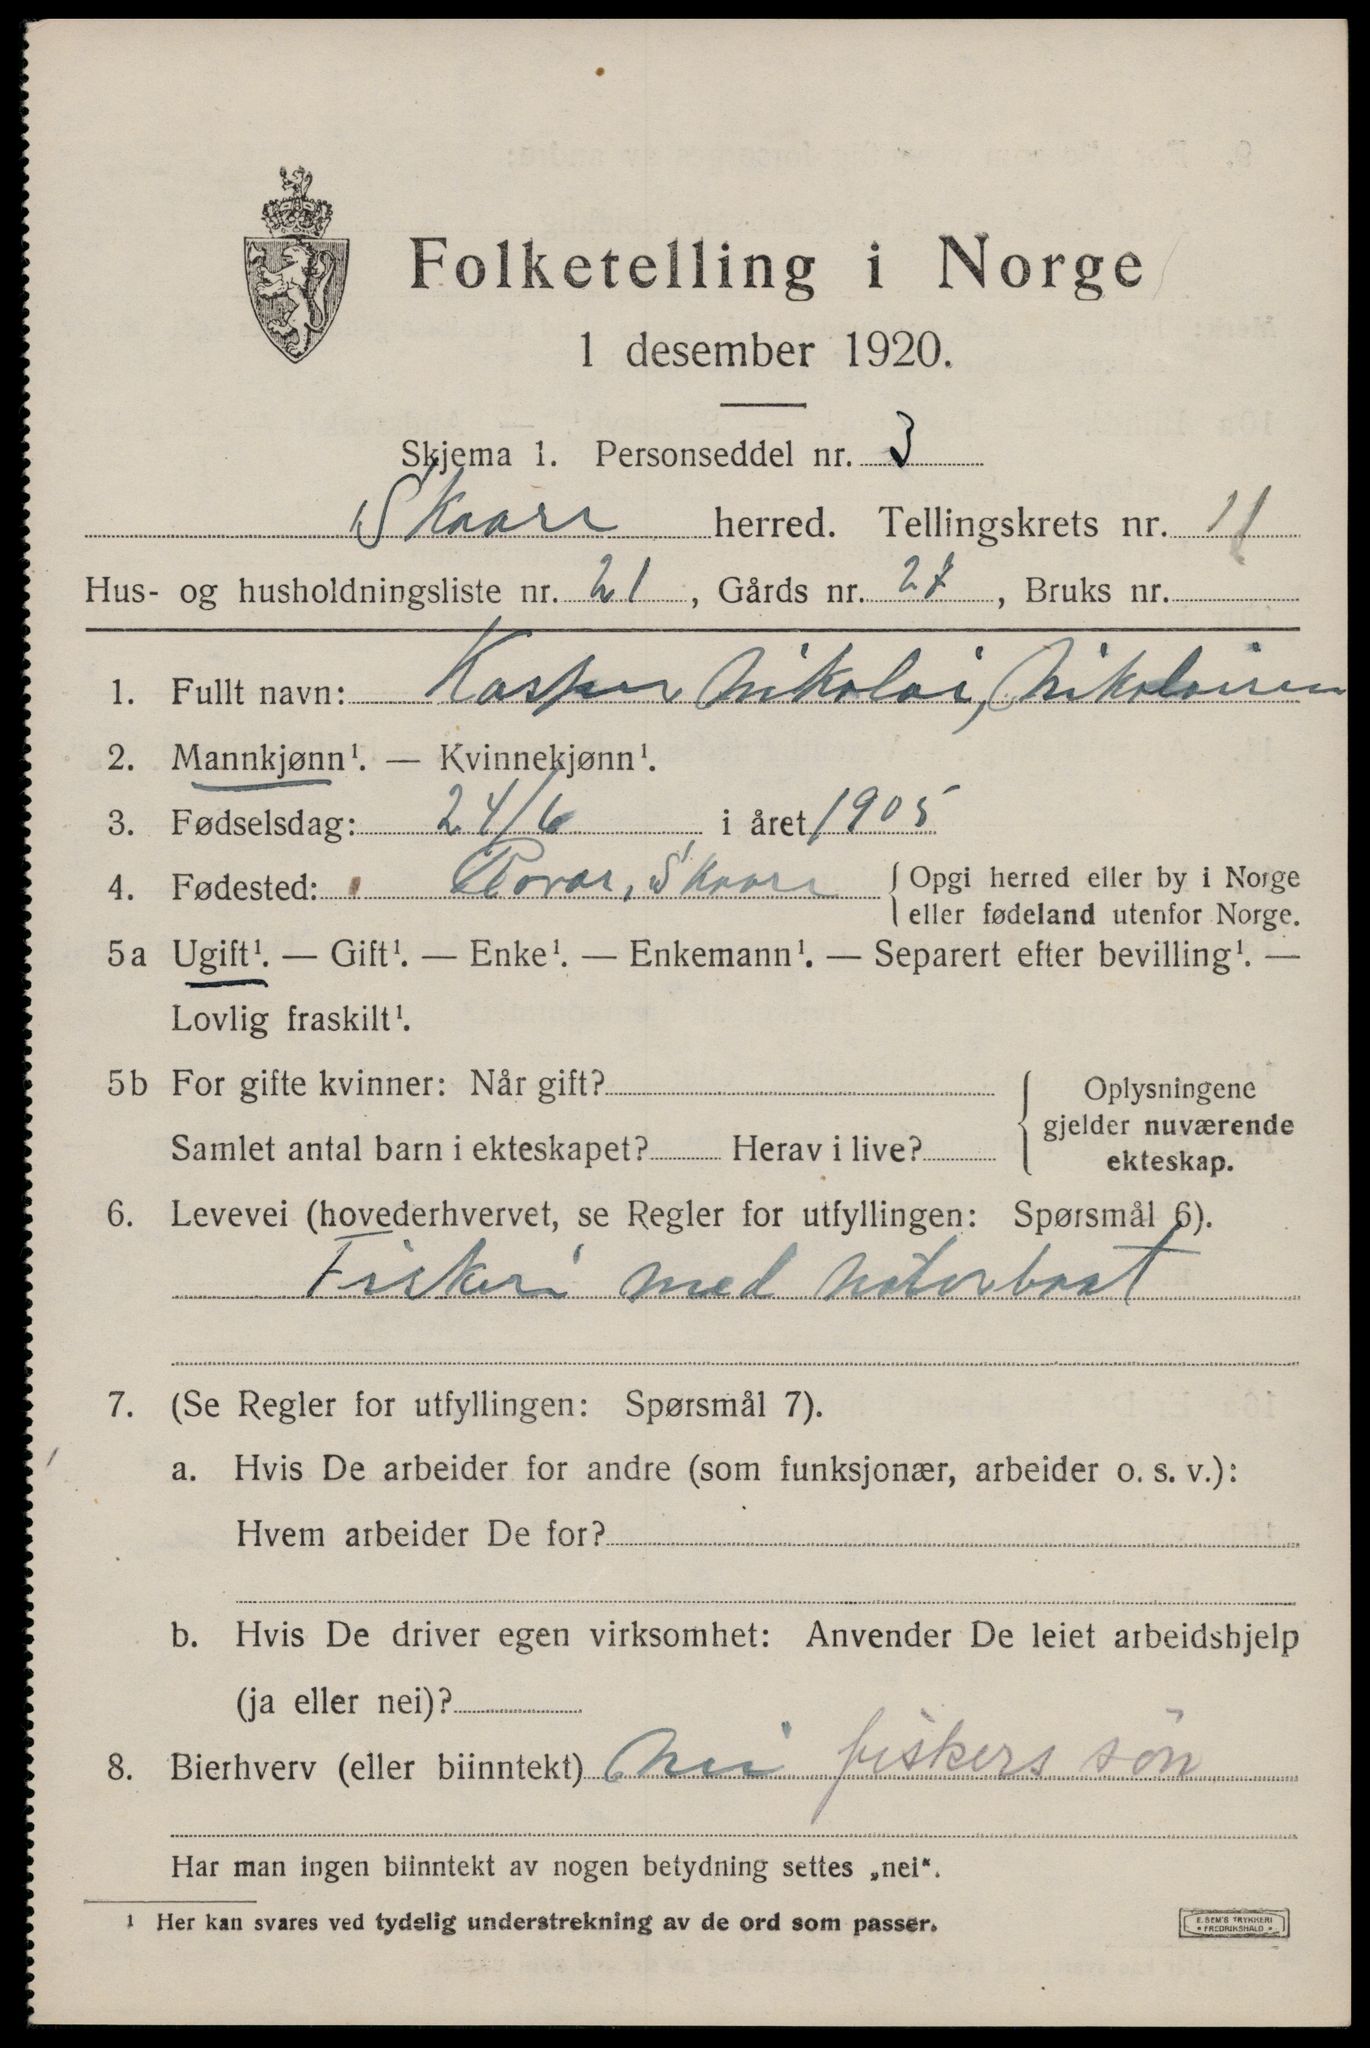 Folketelling i Norge
1 desember 1920.
Skjema 1. Personseddel nr. 3
Skaare herred. Tellingskrets nr. 11
Hus- og husholdningsliste nr. 21, Gårds nr. 27, Bruks nr.
1. Fullt navn: Kasper Nikolai, Nikolaisen
2. Mannkjønn¹. — Kvinnekjønn¹.
3. Fødselsdag: 24/6 i året 1905
4. Fødested: Røvær, Skaare { Opgi herred eller by i Norge
eller fødeland utenfor Norge.
5a Ugift¹. — Gift¹. — Enke¹. — Enkemann¹. — Separert efter bevilling¹. —
Lovlig fraskilt¹.
5b For gifte kvinner: Når gift? { Oplysningene
gjelder nuværende
Samlet antal barn i ekteskapet? Herav i live? ekteskap.
6. Levevei (hovederhvervet, se Regler for utfyllingen: Spørsmål 6).
Fiskeri med motorbaat
7. (Se Regler for utfyllingen: Spørsmål 7).
a. Hvis De arbeider for andre (som funksjonær, arbeider o. s. v.):
Hvem arbeider De for?
b. Hvis De driver egen virksomhet: Anvender De leiet arbeidshjelp
(ja eller nei)?
8. Bierhverv (eller biinntekt) Nei fiskers søn
Har man ingen biinntekt av nogen betydning settes „nei“.
¹ Her kan svares ved tydelig understrekning av de ord som passer.
E. SEM'S TRYKKERI
FREDRIKSHALD